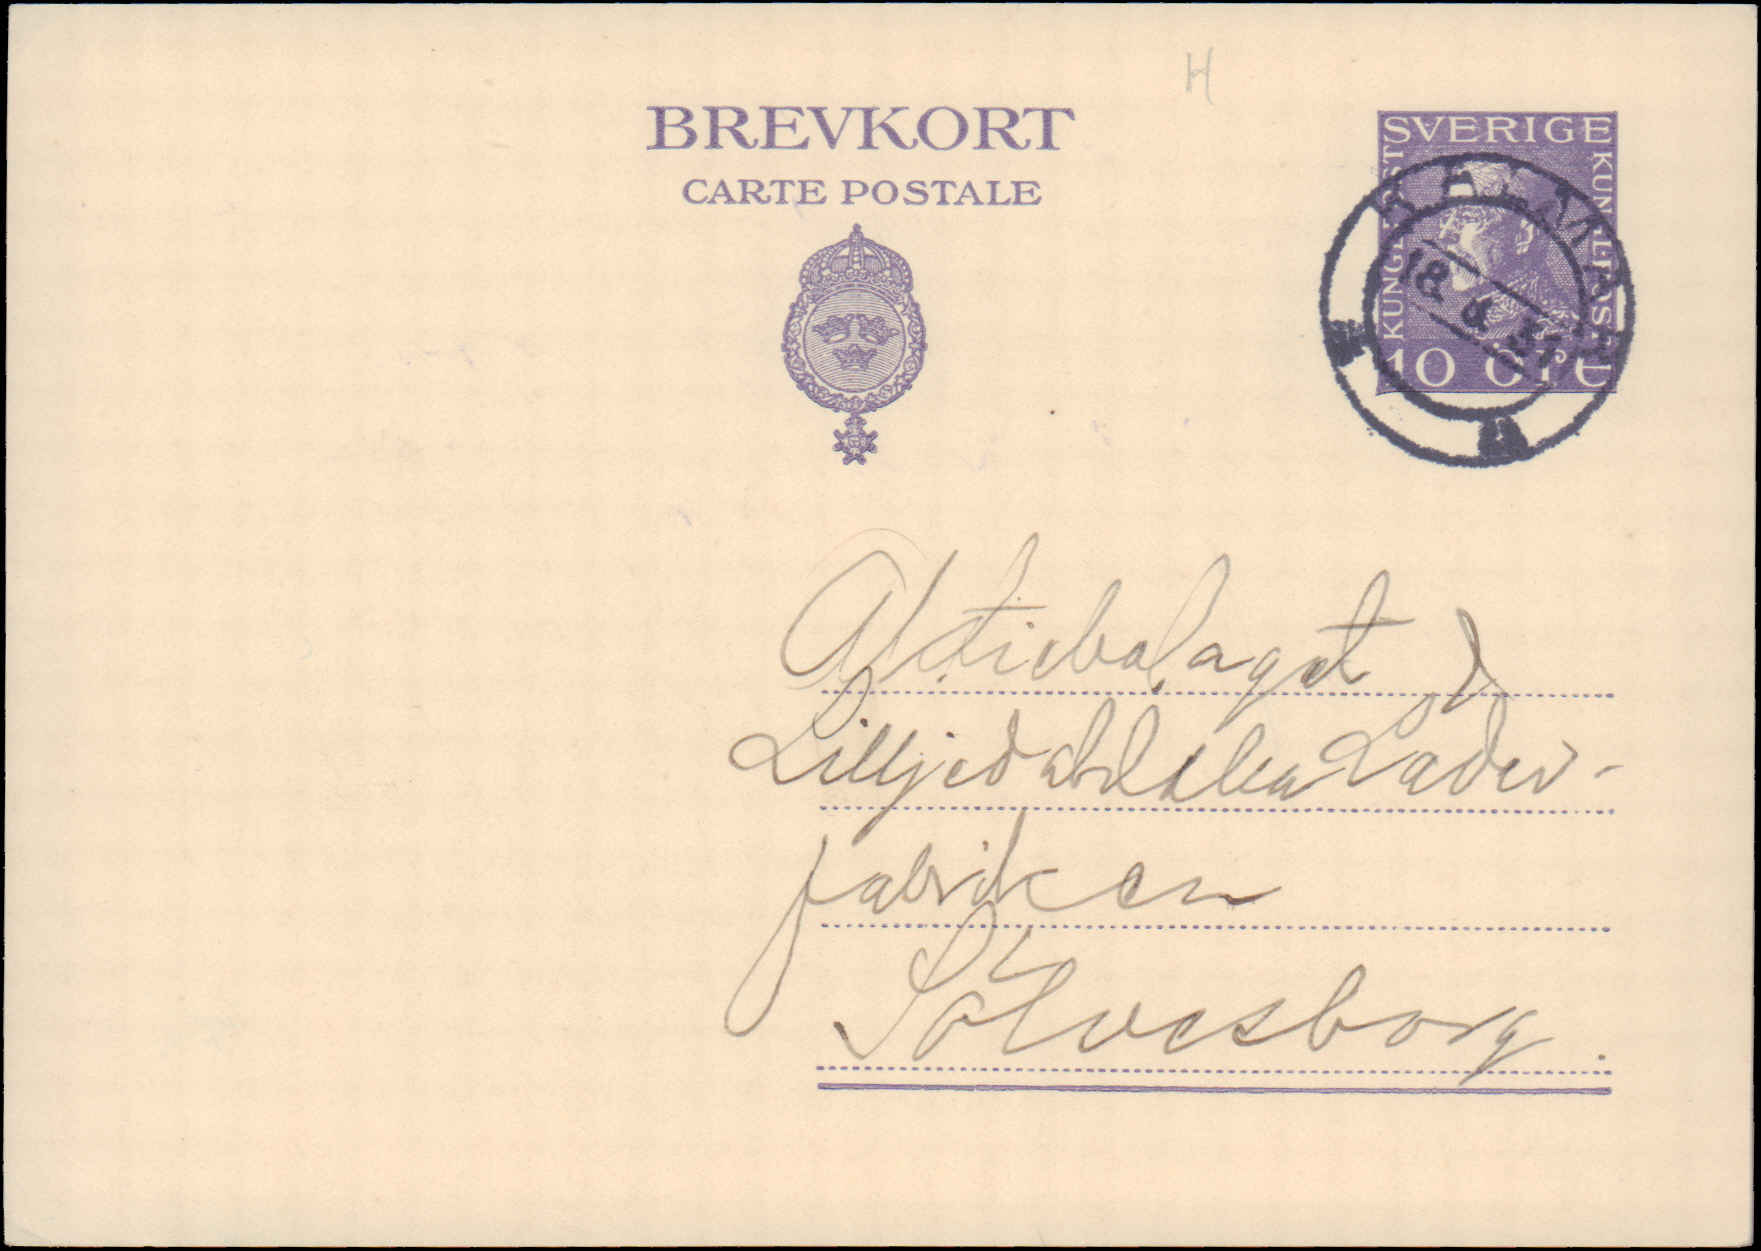 H
BREVKORT
CARTE POSTALE
SVERIGE
KUNGL POST
KUNGL POST
10 ÖRE
KALMAR
18 8
Aktiebolaget
Lilljedahlska Läder-
fabriken
Sölvesborg.